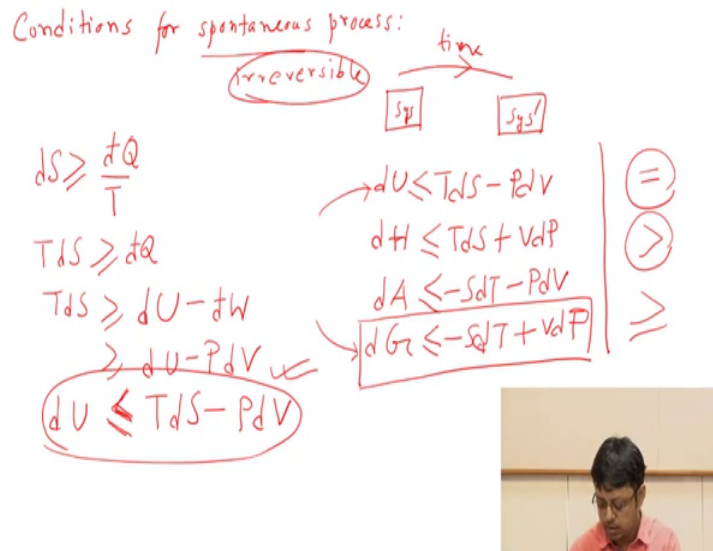 Conditions for spontaneous process:
irreversible
time
Sys
Sys'
dS ≥ đQ/T
TdS ≥ đQ
TdS ≥ dU - đW
≥ dU - PdV
dU ≤ TdS - PdV
dU ≤ TdS - PdV
dH ≤ TdS + VdP
dA ≤ -SdT - PdV
dG ≤ -SdT + VdP
=
>
≥